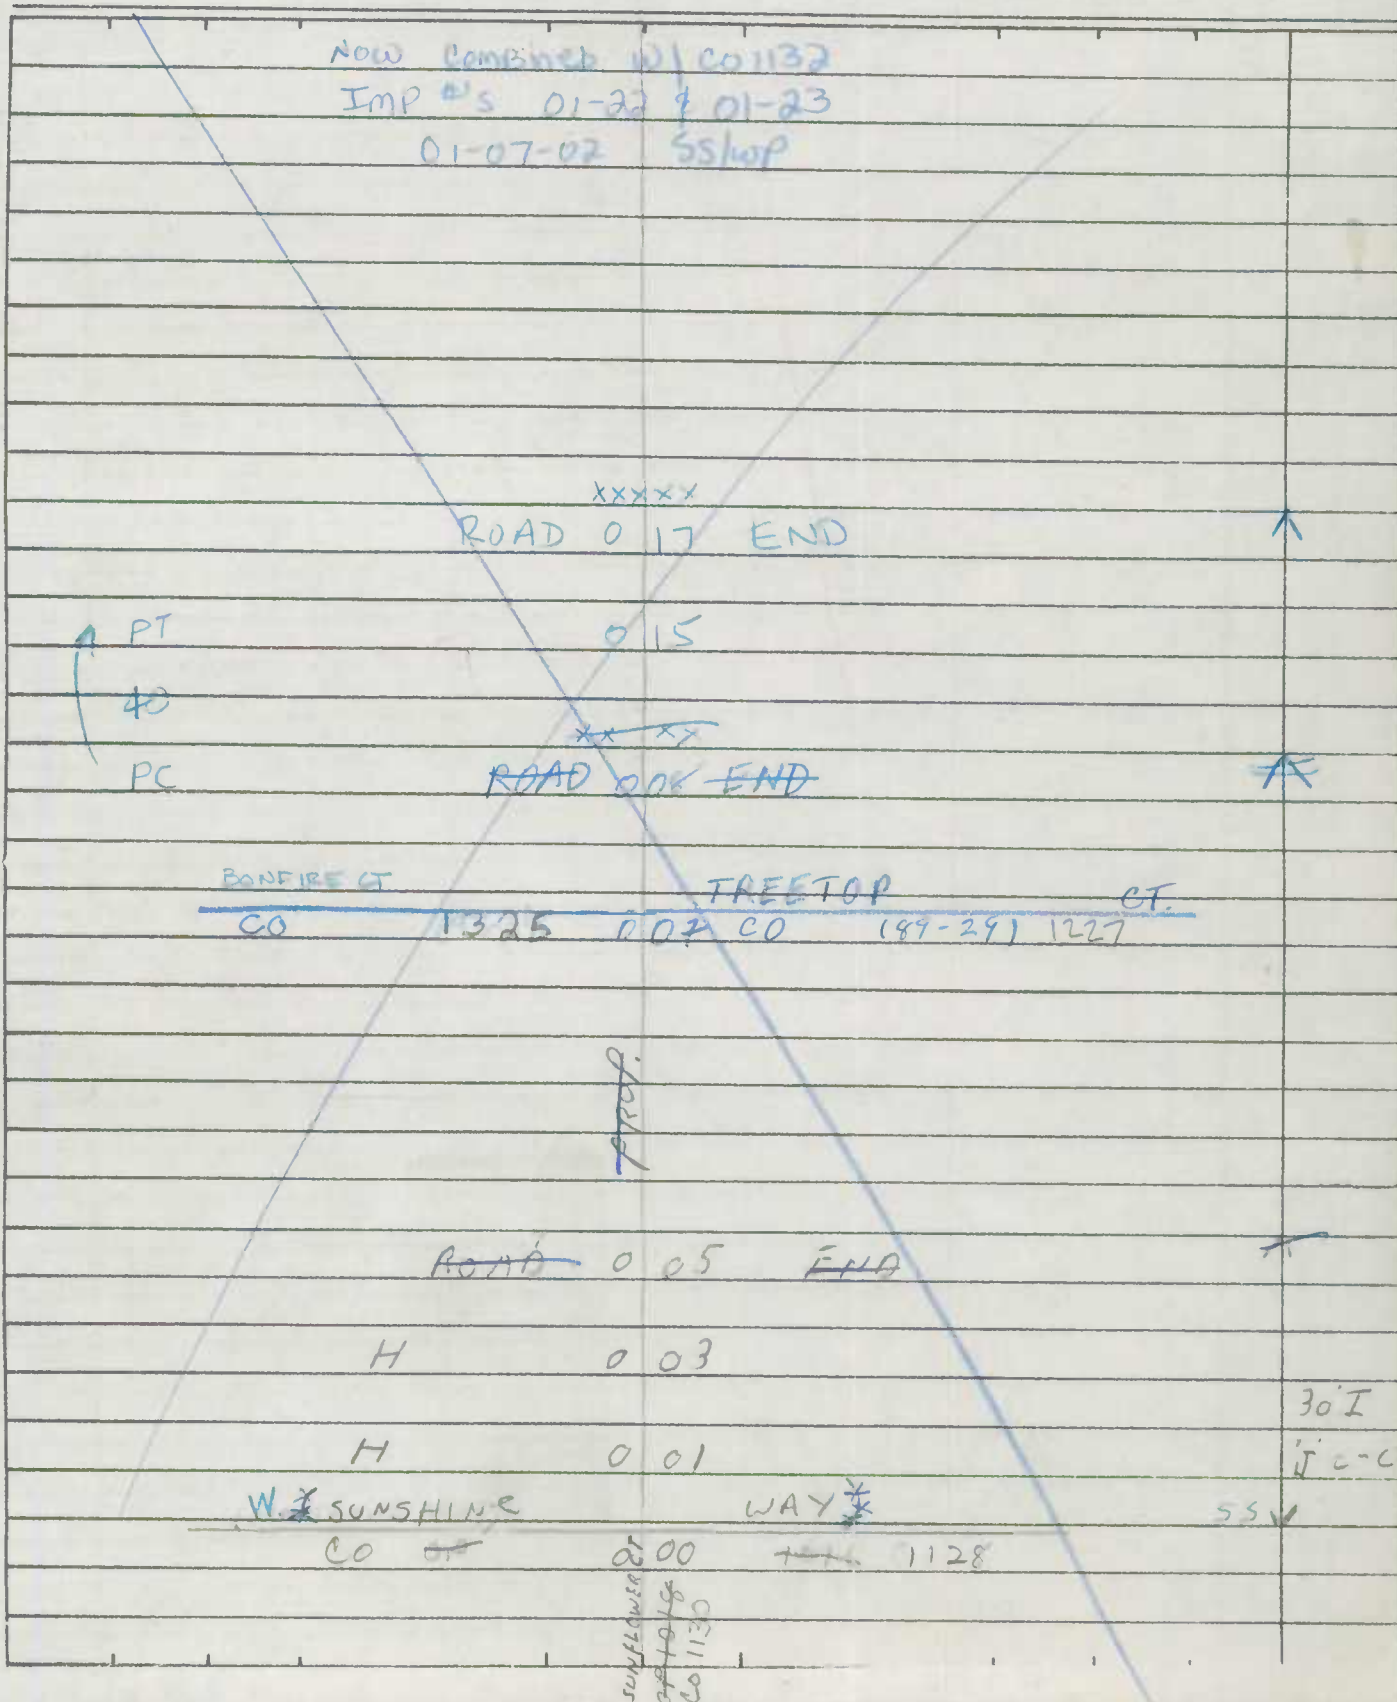 NOW COMBINED W/ CO 1132
IMP #'S 01-22 & 01-23
01-07-02 SS/WP
XXXXX
ROAD 0 17 END
PT 0 15
40
XX XX
PC ROAD 0 08 END
BONFIRE CT TREETOP CT.
CO 1325 0 07 CO (89-29) 1227
PROP.
ROAD 0 05 END
H 0 03
30' I
H 0 01
"J" C-C
W. SUNSHINE WAY
SS
CO 0 00 1128
SUNFLOWER CT
CO 1130